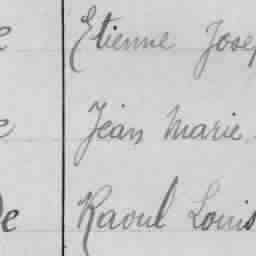 e Etienne Josep
e Jean Marie
de Raoul Louis